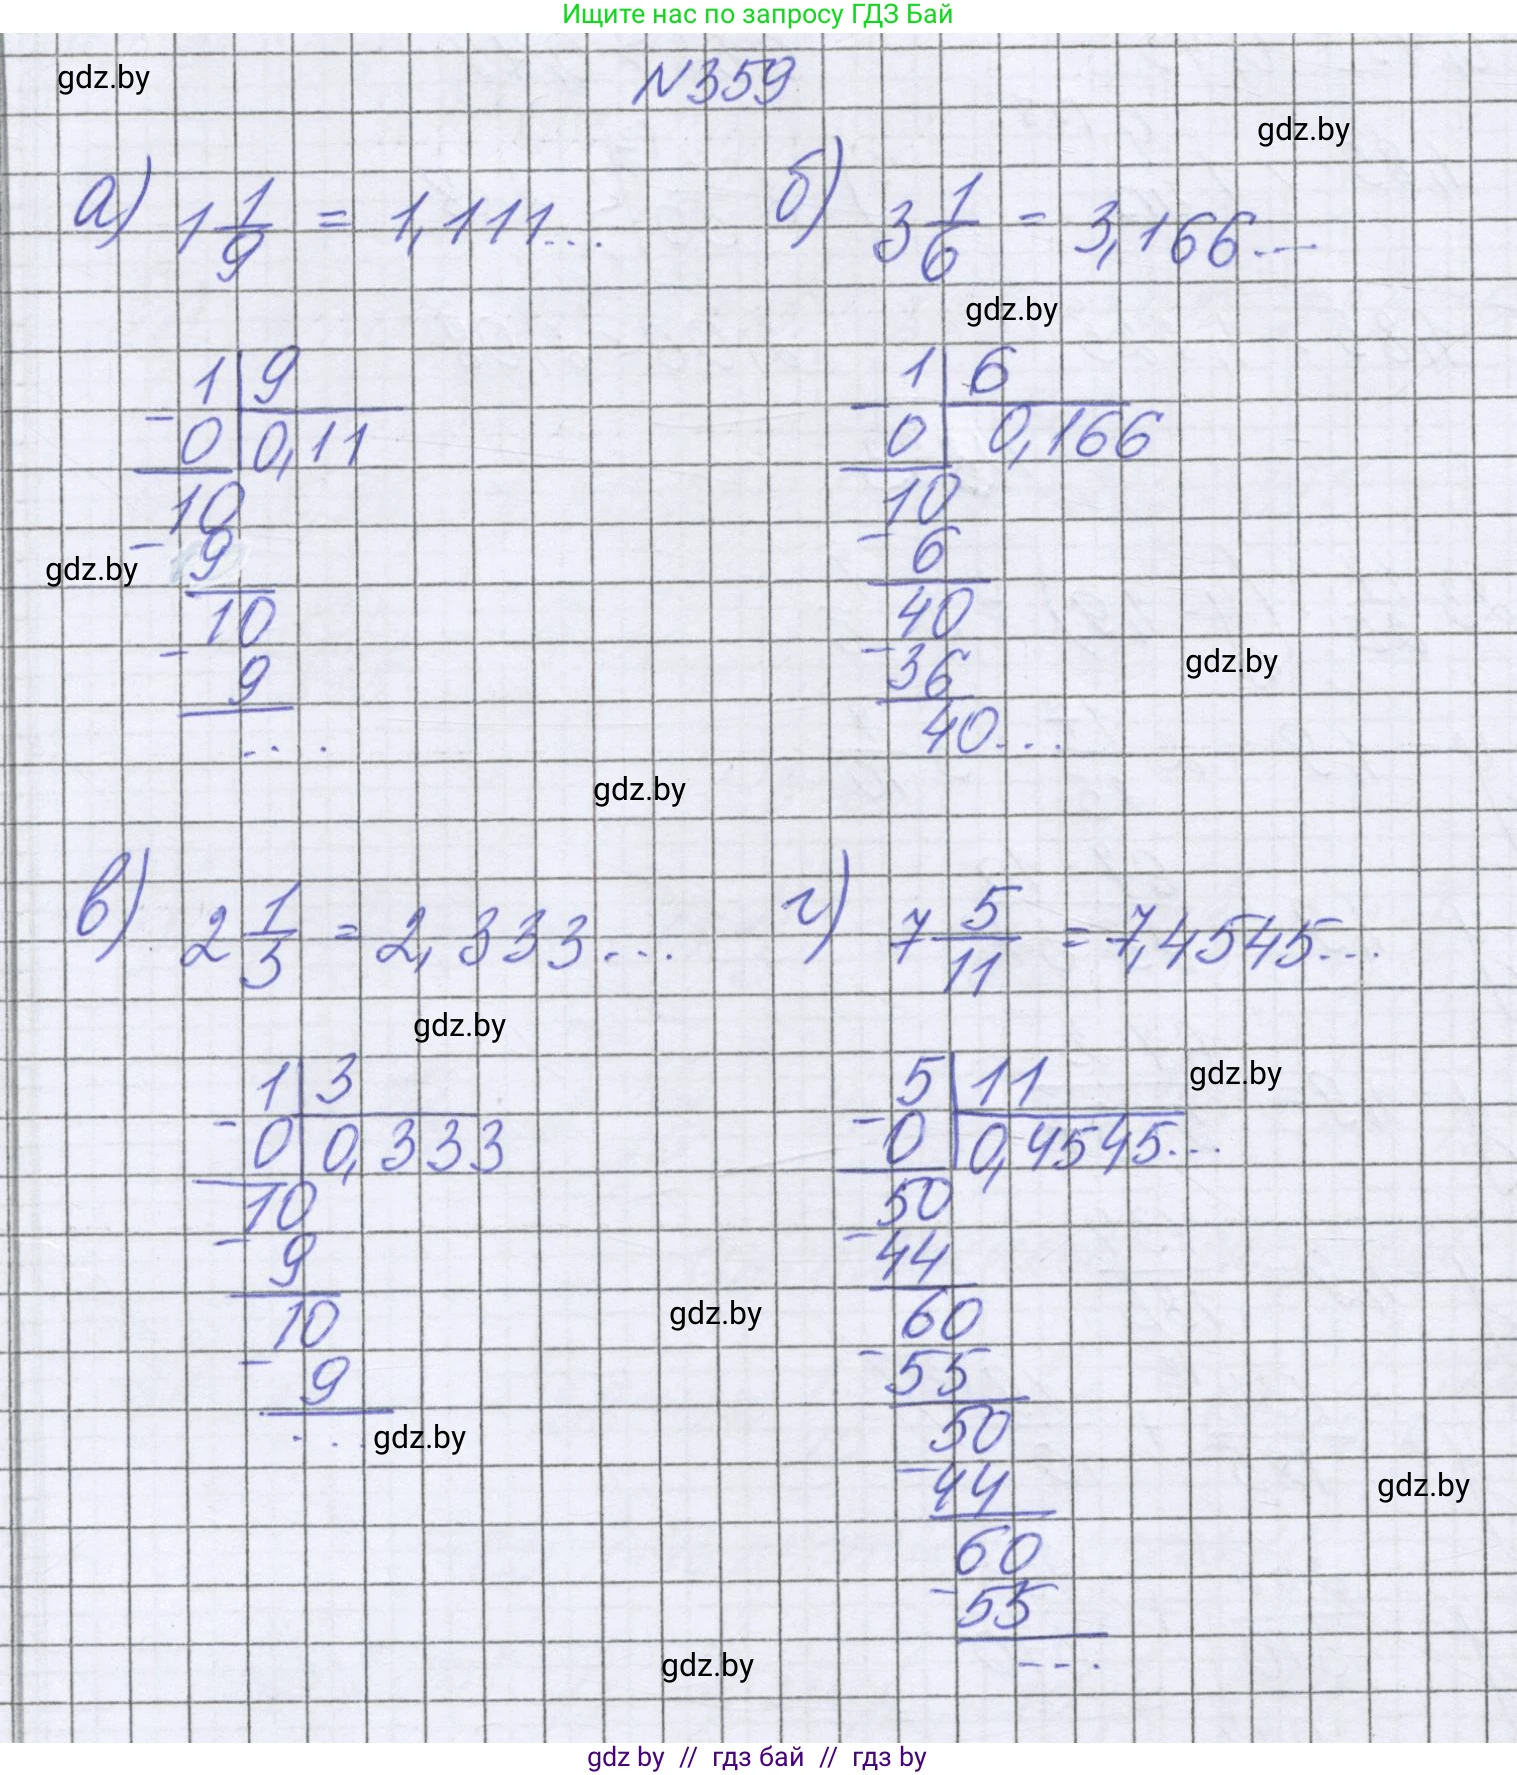 Ищите нас по запросу ГДЗ Бай
gdz.by
N359
gdz.by
а) 1 1/9 = 1,111...
б) 3 1/6 = 3,166...
gdz.by
1 | 9
- 0 | 0,11
10
- 9
gdz.by
10
- 9
...
1 | 6
- 0 | 0,166
10
- 6
40
- 36
gdz.by
40...
gdz.by
в) 2 1/3 = 2,333...
г) 7 5/11 = 7,4545...
gdz.by
1 | 3
- 0 | 0,333
10
- 9
10
- 9
...
gdz.by
5 | 11
gdz.by
- 0 | 0,4545...
50
- 44
60
gdz.by
- 55
50
- 44
gdz.by
60
- 55
...
gdz.by
gdz by // гдз бай // гдз by